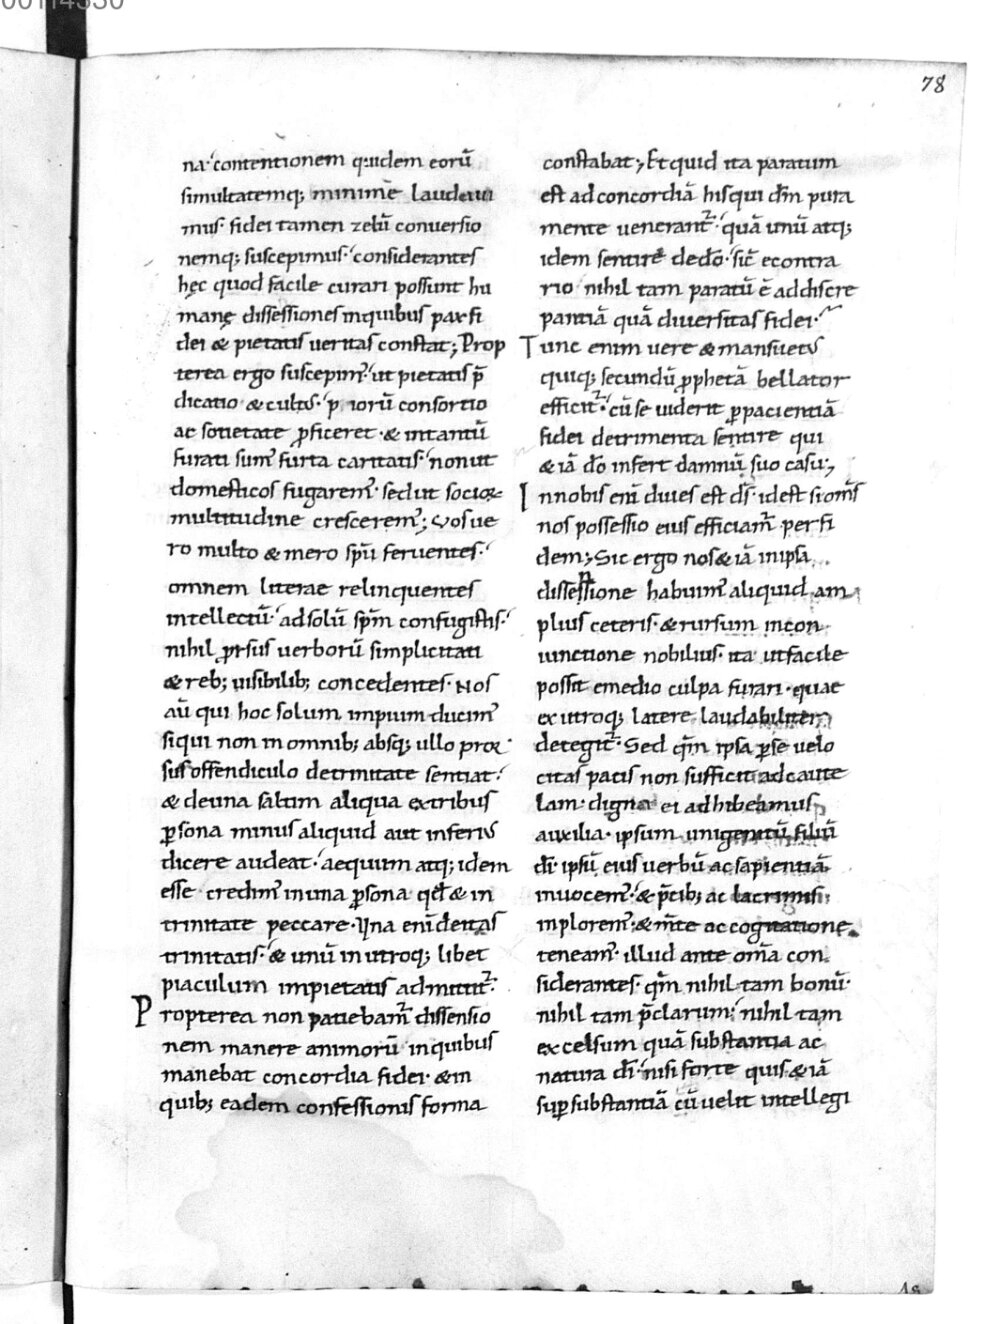 00114330
78
na· contentionem quidem eorū
simultatemq; minime laudaui
mus· fidei tamen zelū conuersio
nemq; suscepimus· considerantes
hęc quod facile curari possunt hu
manę dissessiones inquibus pax fi
dei & pietatis ueritas constat; Prop
terea ergo suscepim᷒ ut pietatis p̄
dicatio & cultus· p iorū consortio
ac sotietate ꝓficeret· & intantū
furati sum᷒ furta caritatis· non ut
domesticos fugarem᷒· sed ut socior
multitudine crescerem᷒; Vos ue
ro multo & mero sp̄u feruentes·
omnem literae relinquentes
intellectū· ad solū sp̄m confugistis·
nihil ꝓrsus uerborū simplicitati
& reb; uisibilib; concedentes· Nos
aū qui hoc solum impium ducim᷒
siqui non in omnib; absq; ullo pror
sus offendiculo detrinitate sentiat·
& deuna saltim aliqua extribus
ꝑsona minus aliquid aut inferius
dicere audeat· aequum atq; idem
esse credim᷒ inuna ꝑsona qđ & in
trinitate peccare· Una eni deitas
trinitatis· & unū in utroq; libet
piaculum impietatis admittit᷒·
Propterea non patiebam᷒ dissensio
nem manere animorū inquibus
manebat concordia fidei· & in
quib; eadem confessionis forma
constabat; Et quid ita paratum
est ad concordiā hisqui dm̄ pura
mente uenerant᷒· quā unū atq;
idem sentire dedō· sic̄ econtra
rio nihil tam paratū ē addiscre
pantiā quā diuersitas fidei·
Tunc enim uere & mansuetus
quiq; secundū ꝓphetā bellator
efficit᷒· cū se uiderit ꝑpacientiā
fidei detrimenta sentire qui
& iā dō infert damnū suo casu;
Innobis eni diues est ds̄· idest si om̄s
nos possessio eius efficiam᷒ per fi
dem; Sic ergo nos & iā inipsa
dissessione habuim᷒ aliquid am
plius ceteris· & rursum incon
iunctione nobilius· ita ut facile
possit emedio culpa furari· quae
ex utroq; latere laudabiliter
detegit᷒· Sed qm̄ ipsa ꝑse uelo
citas patis non sufficit ad caute
lam· digna ei adhibeamus
auxilia· ipsum unigenitū filiū
dī· ipsū eius uerbū ac sapientiā
inuocem᷒· & p̄cib; ac lacrimis
inplorem᷒· & m̄te ac cognatione
teneam᷒· illud ante om̄a con
siderantes· qm̄ nihil tam bonū·
nihil tam p̄clarum· nihil tam
excelsum quā substantia ac
natura dī· nisi forte quis & iā
suꝑ substantiā cū uelit intellegi